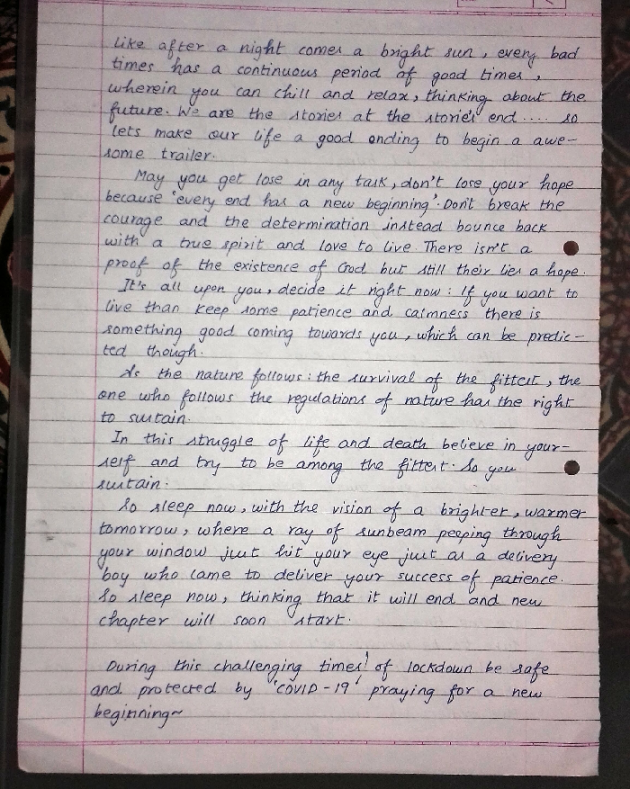 like after a night comes a bright sun, every bad
times has a continuous period of good times,
wherein you can chill and relax, thinking about the
future. We are the stories at the stories end .... so
lets make our life a good ending to begin a awe-
some trailer.
May you get lose in any task, don't lose your hope
because "every end has a new beginning". Don't break the
courage and the determination instead bounce back
with a true spirit and love to live. There isn't a
proof of the existence of God but still their lies a hope.
It's all upon you, decide it right now: If you want to
live than keep some patience and calmness there is
something good coming towards you, which can be predic-
ted though.
As the nature follows: the survival of the fittest, the
one who follows the regulations of nature has the right
to sustain.
In this struggle of life and death believe in your-
self and try to be among the fittest. So you
sustain.
So sleep now, with the vision of a brighter, warmer
tomorrow, where a ray of sunbeam peeping through
your window just hit your eye just as a delivery
boy who came to deliver your success of patience.
So sleep now, thinking that it will end and new
chapter will soon start.
During this challenging times! of lockdown be safe
and protected by "COVID-19" praying for a new
beginning~